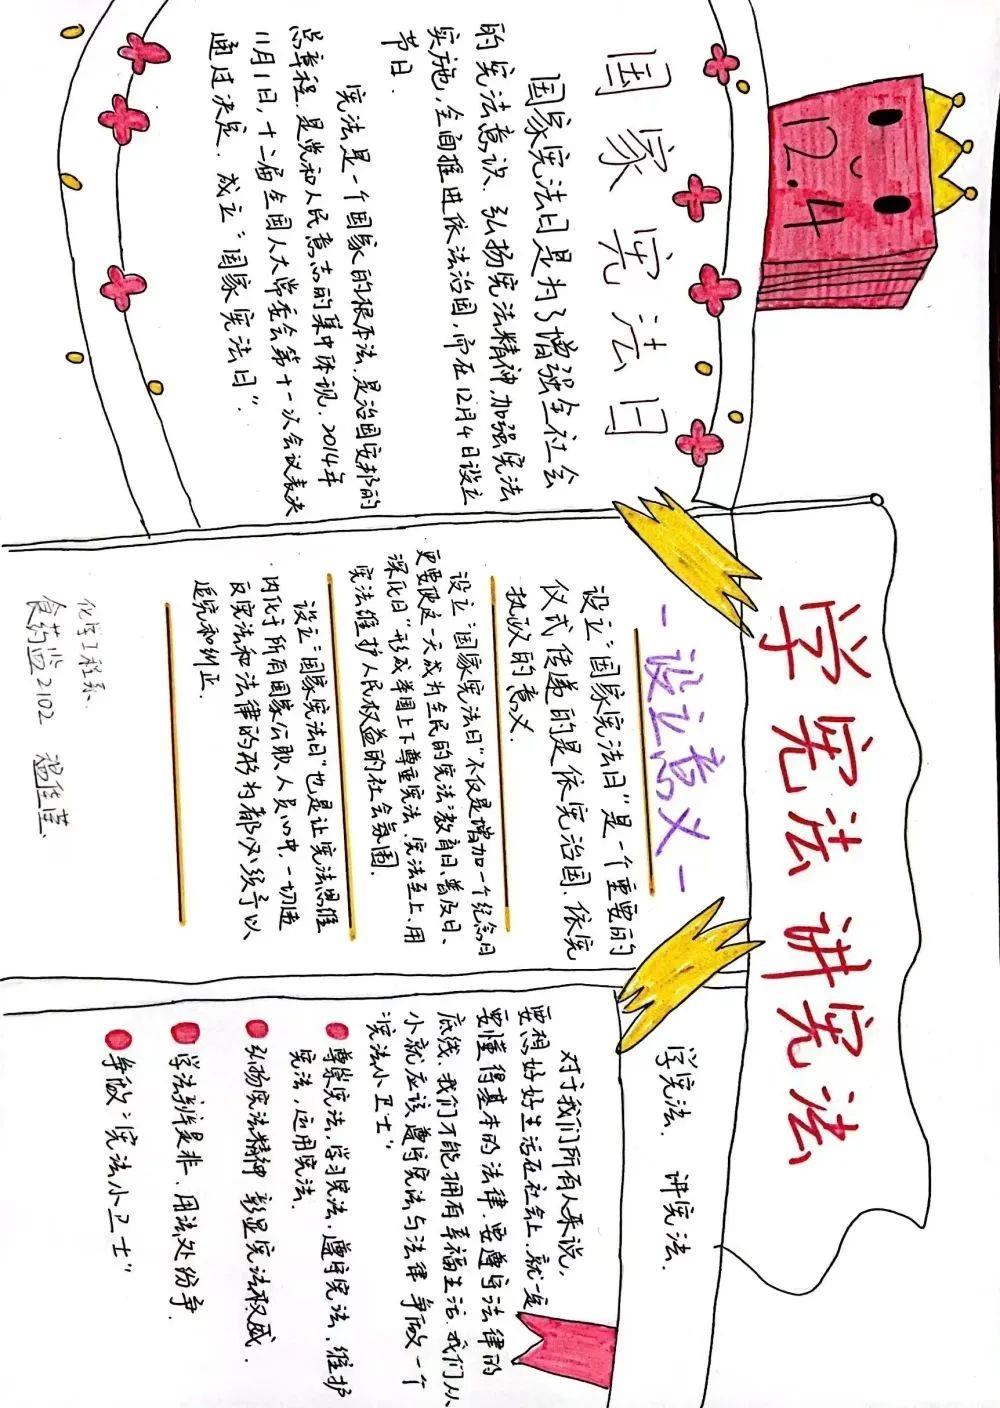 学宪法 讲宪法
12.4
国家宪法日
国家宪法日是为了增强全社会
的宪法意识、弘扬宪法精神,加强宪法
实施,全面推进依法治国,而在12月4日设立
节日.
宪法是一个国家的根本法,是治国安邦的
总章程.是党和人民意志的集中体现.2014年
11月1日,十二届全国人大常委会第十一次会议表决
通过决定.成立“国家宪法日”.
-设立意义-
设立“国家宪法日”是一个重要的
仪式传递的是依宪治国、依宪
执政的意义.
设立“国家宪法日”不仅是增加一个纪念日
更要使这一天成为全民的宪法教育日、普及日、
深化日”形成举国上下尊重宪法、宪法至上、用
宪法维护人民权益的社会氛围.
设立“国家宪法日”也是让宪法思维
内化于所有国家公职人员心中.一切违
反宪法和法律的行为都必须予以
追究和纠正.
化学工程系
食药监2102 温佳莹、
学宪法. 讲宪法.
对于我们所有人来说,
要想好好生活在社会上,就一定
要懂得基本的法律,要遵守法律的
底线,我们才能拥有幸福生活.我们从
小就应该遵守宪法与法律争做一个
“宪法小卫士”
尊崇宪法,学习宪法,遵守宪法、维护
宪法,运用宪法.
弘扬宪法精神 彰显宪法权威.
学法辨是非、用法处纷争.
争做“宪法小卫士”